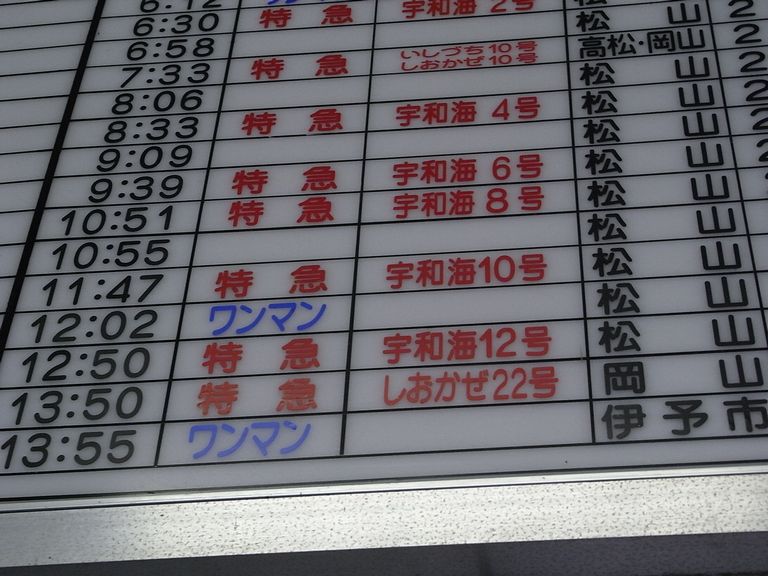 6:12
6:30 特急 宇和海 2号 松山
6:58 松山
7:33 特急 いしづち10号 しおかぜ10号 高松・岡山
8:06 松山
8:33 特急 宇和海 4号 松山
9:09 松山
9:39 特急 宇和海 6号 松山
10:51 特急 宇和海 8号 松山
10:55 松山
11:47 特急 宇和海10号 松山
12:02 ワンマン 松山
12:50 特急 宇和海12号 松山
13:50 特急 しおかぜ22号 岡山
13:55 ワンマン 伊予市